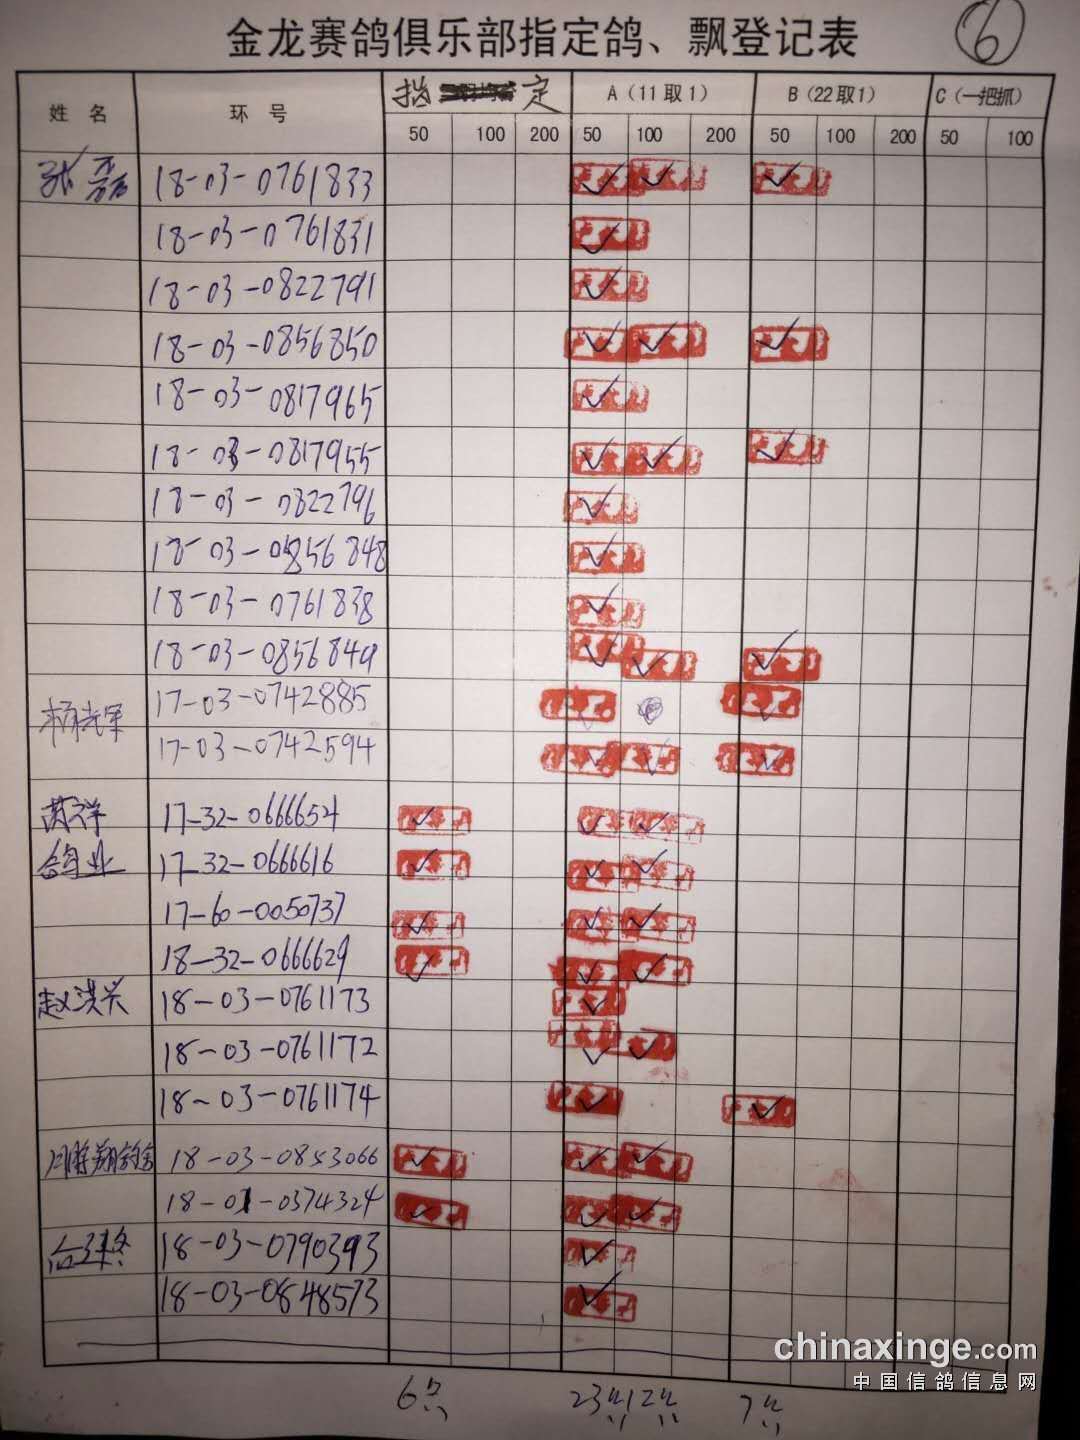 金龙赛鸽俱乐部指定鸽、飘登记表 6
姓 名 环 号 指 定 A(11取1) B(22取1) C(一把抓)
50 100 200 50 100 200 50 100 200 50 100
张磊 18-03-0761833
18-03-0761831
18-03-0822791
18-03-0856850
18-03-0817965
18-03-0817955
18-03-0822796
18-03-0856848
18-03-0761838
18-03-0856849
杨光军 17-03-0742885
17-03-0742594
17-32-0666654
鸽业 17-32-0666616
17-60-0050737
18-32-0666629
赵洪兴 18-03-0761173
18-03-0761172
18-03-0761174
翔鸽舍 18-03-0853066
18-01-0374324
18-03-0790393
18-03-0848573
6只 23只 12只 7只
chinaxinge.com
中国信鸽信息网